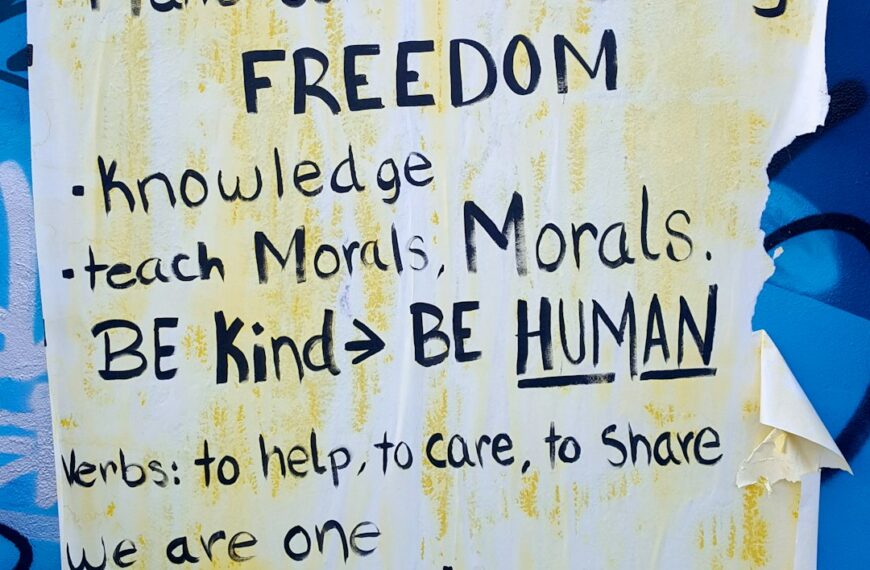 FREEDOM
• Knowledge
• teach Morals, Morals.
BE Kind → BE HUMAN
Verbs: to help, to care, to share
We are one